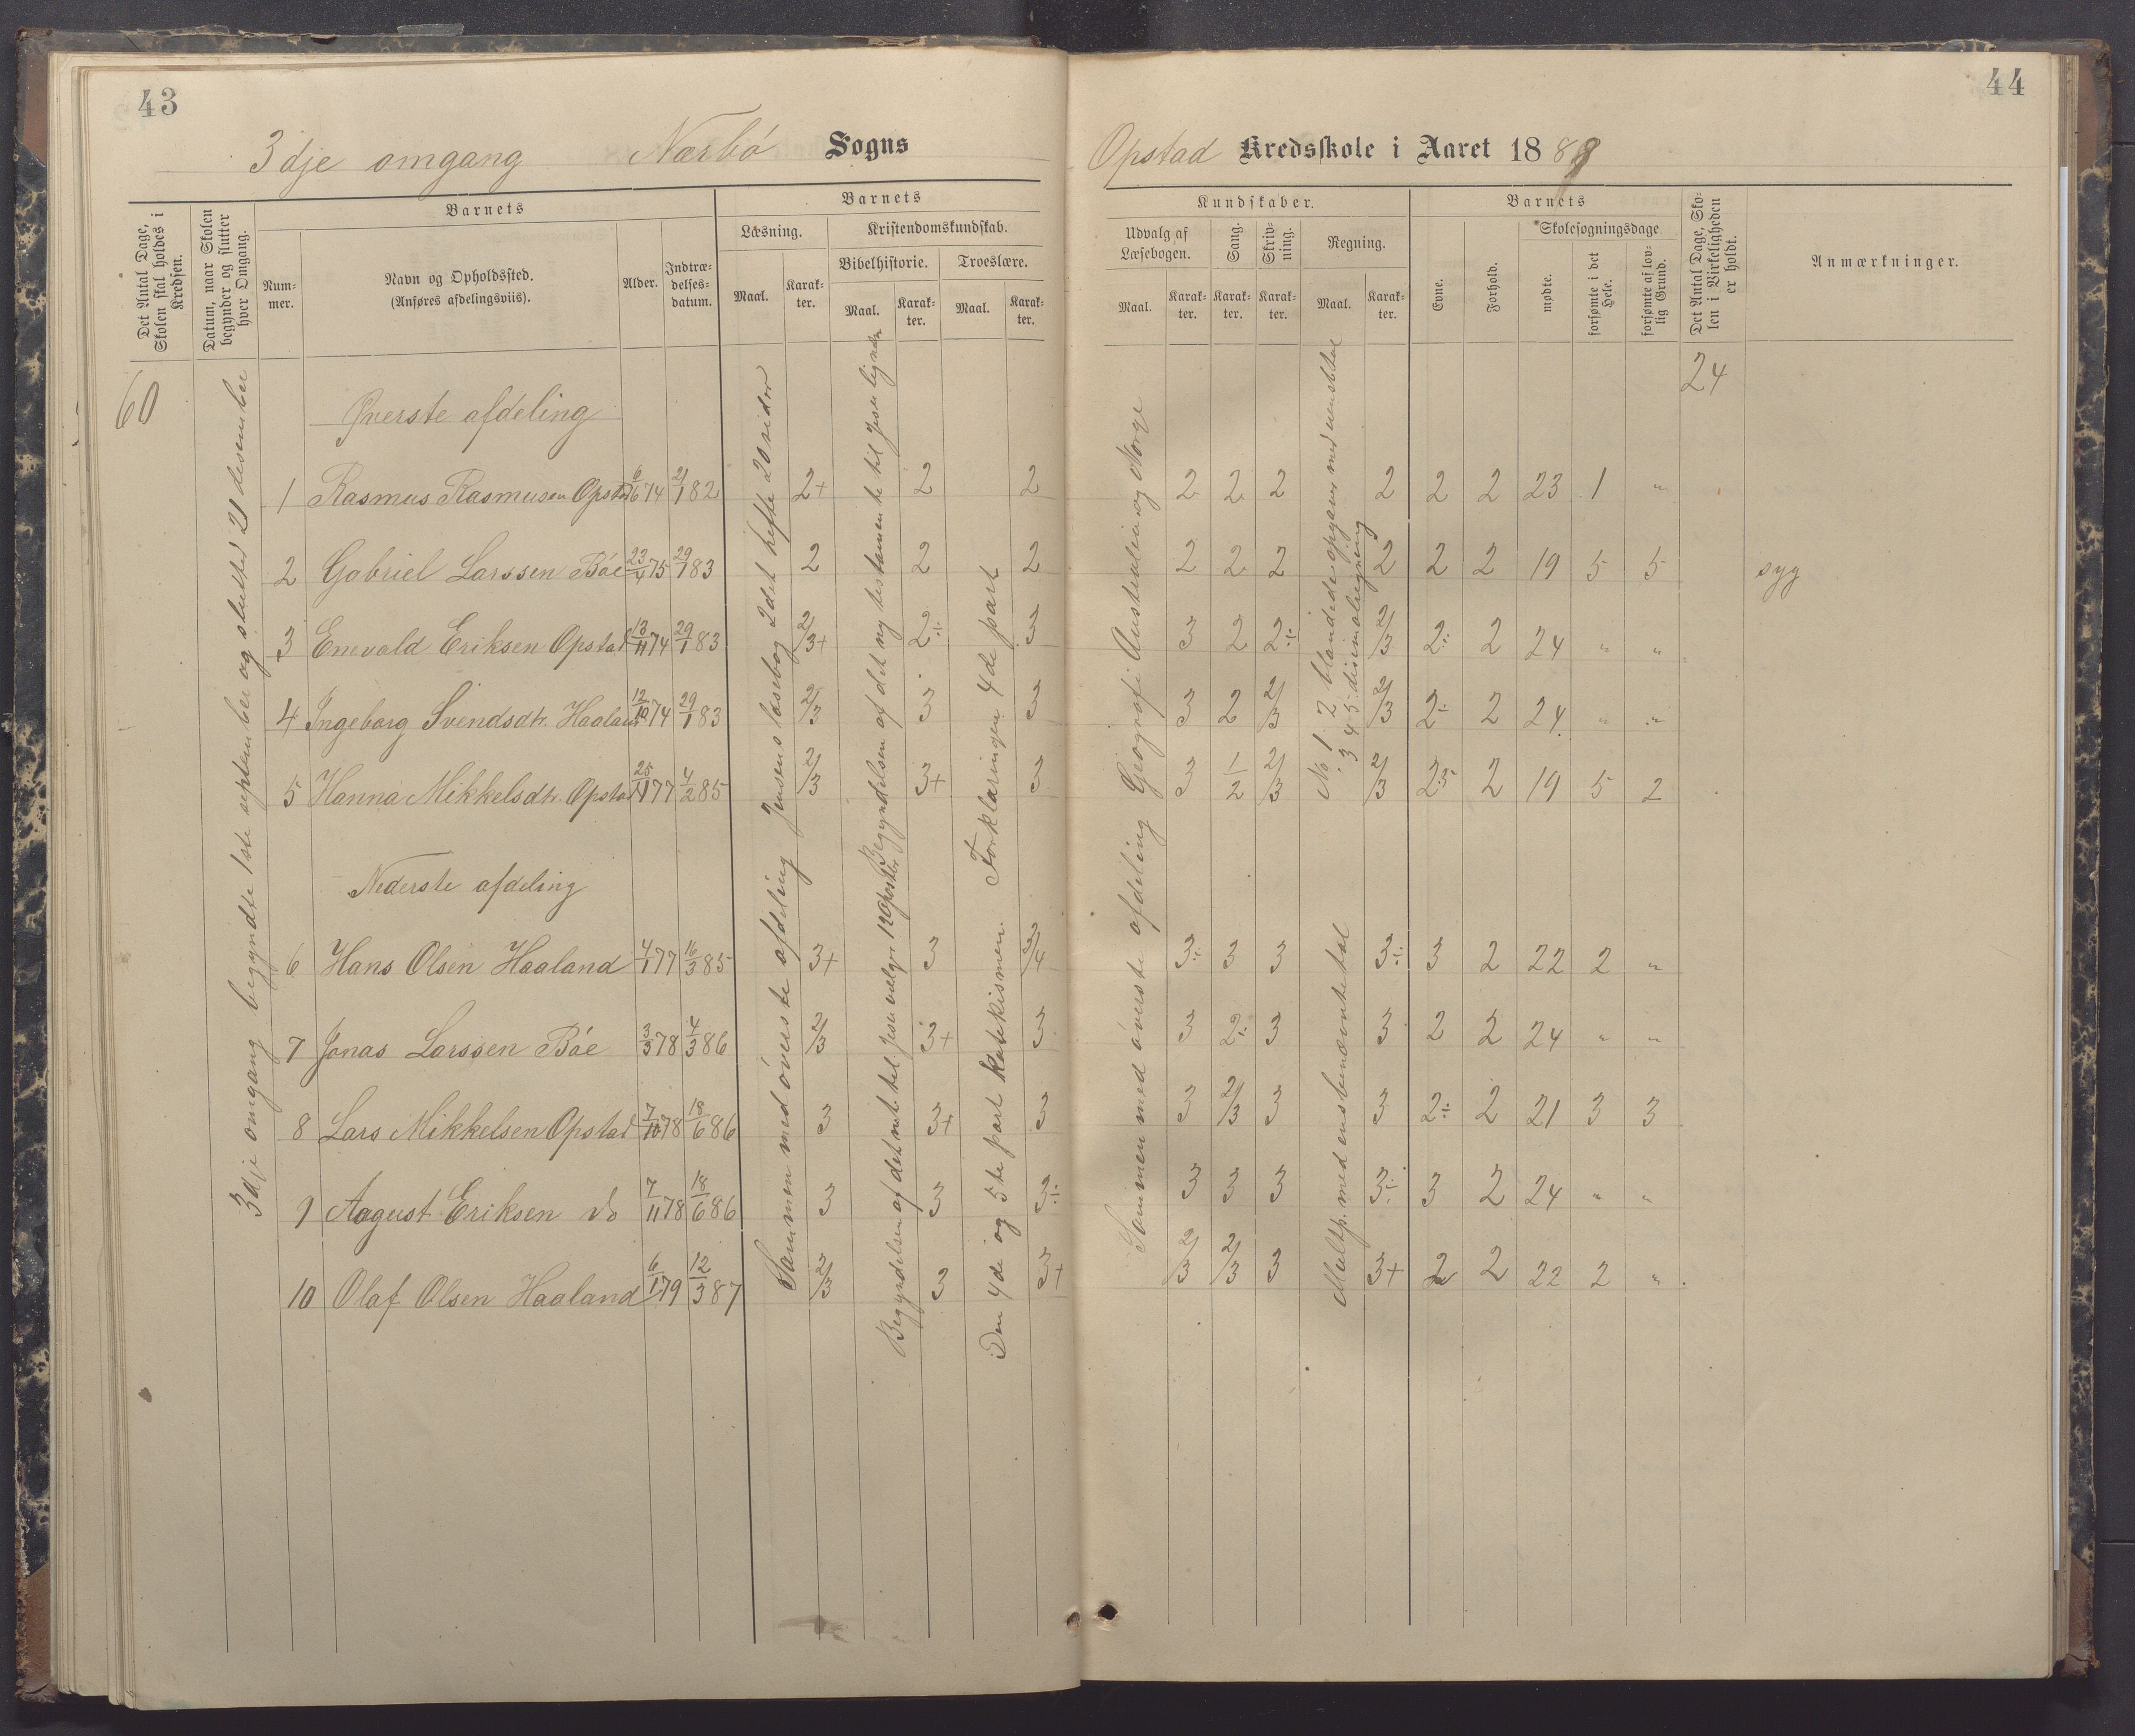 43
3dje omgang Nærbö Sogns
Det Antal Dage, Skolen skal holdes i Kredsen.
Datum, naar Skolen begynder og slutter hver Omgang.
Barnets
Num-
mer.
Navn og Opholdssted.
(Anføres afdelingsviis).
Alder.
Indtræ-
delses-
datum.
Barnets
Læsning.
Kristendomskundskab.
Bibelhistorie.
Troeslære.
Maal.
Karak-
ter.
Maal.
Karak-
ter.
Maal.
Karak-
ter.
60
3dje omgang begyndte 1ste september og sluttet 21 desember
Øverste afdeling
1 Rasmus Rasmusen Opstad 6/6 74 21/1 82 2+ 2 2
2 Gabriel Larssen Böe 23/4 75 29/1 83 2 2 2
3 Enevald Eriksen Opstad 13/11 74 29/1 83 2/3+ 2÷ 3
4 Ingeborg Svendsdtr. Haaland 12/10 74 29/1 83 2/3 3 3
5 Hanna Mikkelsdtr. Opstad 25/1 77 4/2 85 2/3 3+ 3
Nederste afdeling
6 Hans Olsen Haaland 4/1 77 16/3 85 3+ 3 3/4
7 Jonas Larssen Böe 3/3 78 4/3 86 2/3 3+ 3
8 Lars Mikkelsen Opstad 7/10 78 18/6 86 3 3+ 3
9 August Eriksen do 7/11 78 18/6 86 3 3 3÷
10 Olaf Olsen Haaland 6/1 79 12/3 87 2/3 3 3+
Jensens læsebog 2det hefte 20 sider
Sammen med överste afdeling
Begyndelsen af det ny testamente til Jesu lignelser
Begyndelsen af det nyt. til Jesu vælger 12 Apostler
Forklaringen 4de part
Den 4de og 5te part katekismen.
44
Opstad Kredsskole i Aaret 1888
Kundskaber.
Udvalg af
Læsebogen.
Sang.
Skriv-
ning.
Regning.
Maal.
Karak-
ter.
Karak-
ter.
Karak-
ter.
Maal.
Karak-
ter.
Barnets
Evne.
Forhold.
Skolesøgningsdage.
mødte.
forsømte i det Hele.
forsømte af lov-
lig Grund.
Det Antal Dage, Sko-
len i Virkeligheden er holdt.
Anmærkninger.
24
2 2 2 2 2 2 23 1 "
2 2 2 2 2 2 19 5 5 syg
3 2 2÷ 2/3 2÷ 2 24 " "
3 2 2/3 2/3 2÷ 2 24 " "
3 1/2 2/3 2/3 2 19 5 2
3÷ 3 3 3÷ 3 2 22 2 "
3 2÷ 3 3 2 2 24 " "
3 2/3 3 3 2÷ 2 21 3 3
3 3 3 3÷ 3 2 24 " "
2/3 2/3 3 3+ 2 2 22 2 "
Geografi Australien og Norge
Sammen med överste afdeling
No 1 2 blandede opgaver med uensbtal
3 4 5 disimalregning
Multp. med ensbenævnte tal